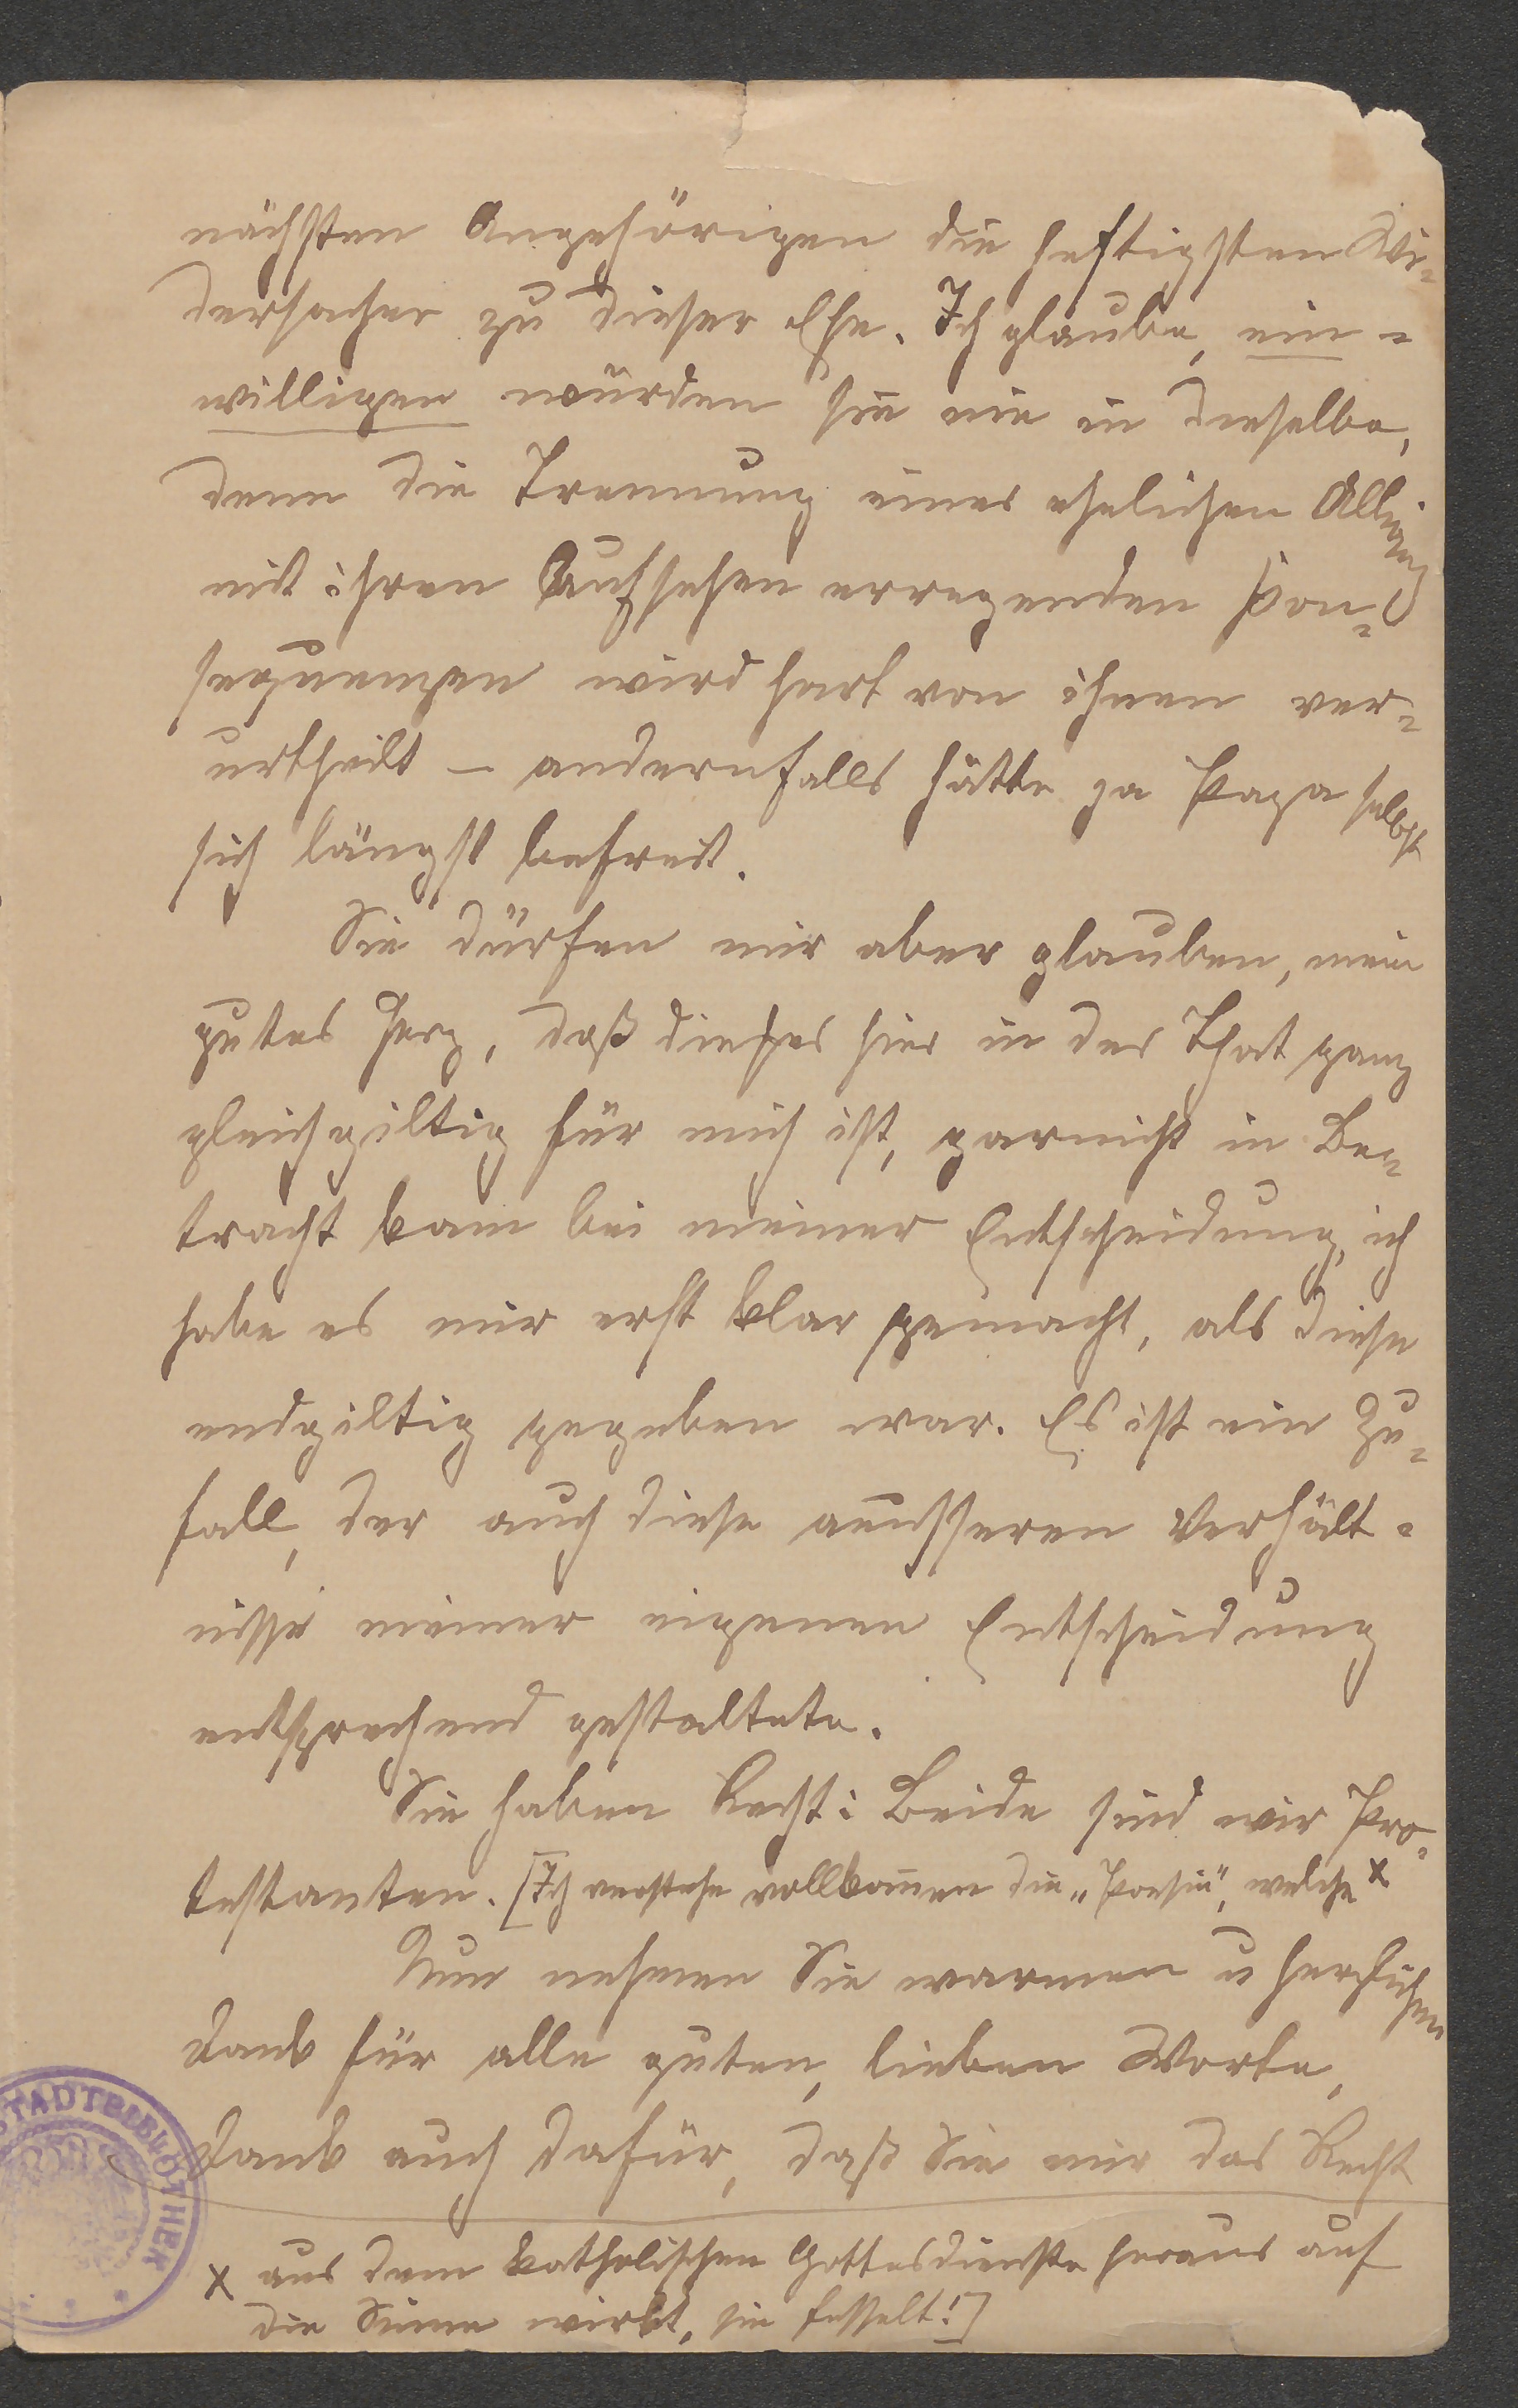 nächsten Angehörigen die heftigsten Wi-
dersacher zu dieser Ehe. Ich glaube, ein-
willigen würden sie nie in dieselbe,
denn die Trennung einer ehelichen Allianz
mit ihren Aufsehen erregenden Kon-
sequenzen wird hart von ihnen ver-
urtheilt — andernfalls hätte ja Papa selbst
sich längst befreit.
Sie dürfen mir aber glauben, mein
gutes Herz, daß dieses hier in der That ganz
gleichgiltig für mich ist, garnicht in Be-
tracht kam bei meiner Entscheidung, ich
habe es mir erst klar gemacht, als diese
endgiltig gegeben war. Es ist ein Zu-
fall, der auch diese äusseren Verhält-
nisse meiner eigenen Entscheidung
entsprechend gestaltete.
Sie haben Recht: Beide sind wir Pro-
testanten. [Ich verstehe vollkommen die „Poesie“, welche x
Nun nehmen Sie warmen u herzlichen
Dank für alle guten, lieben Worte,
Dank auch dafür, daß Sie mir das Recht
x aus dem katholischen Gottesdienste heraus auf
die Sinne wirkt, sie fesselt!]
STADTBIBLIOTHEK